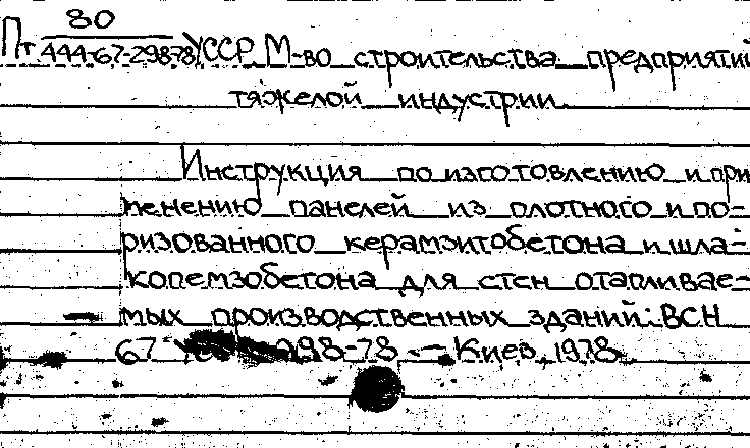 80
Пт 444-67-298-78 УССР. М-во строительства предприятий
тяжелой индустрии.
Инструкция по изготовлению и при
менению панелей из плотного и по-
ризованного керамзитобетона и шла-
копемзобетона для стен отапливае-
мых производственных зданий: ВСН
67 298-78 — Киев, 1978